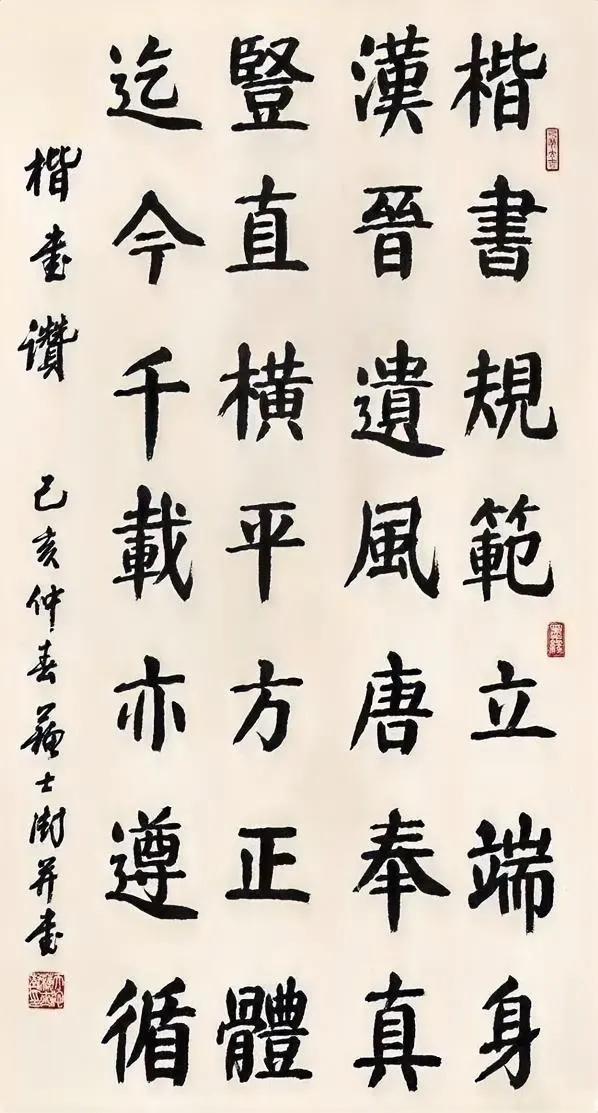 楷書規範立端身
漢晉遺風唐奉真
豎直橫平方正體
迄今千載亦遵循
楷書讚
己亥仲春蘇士澍并書